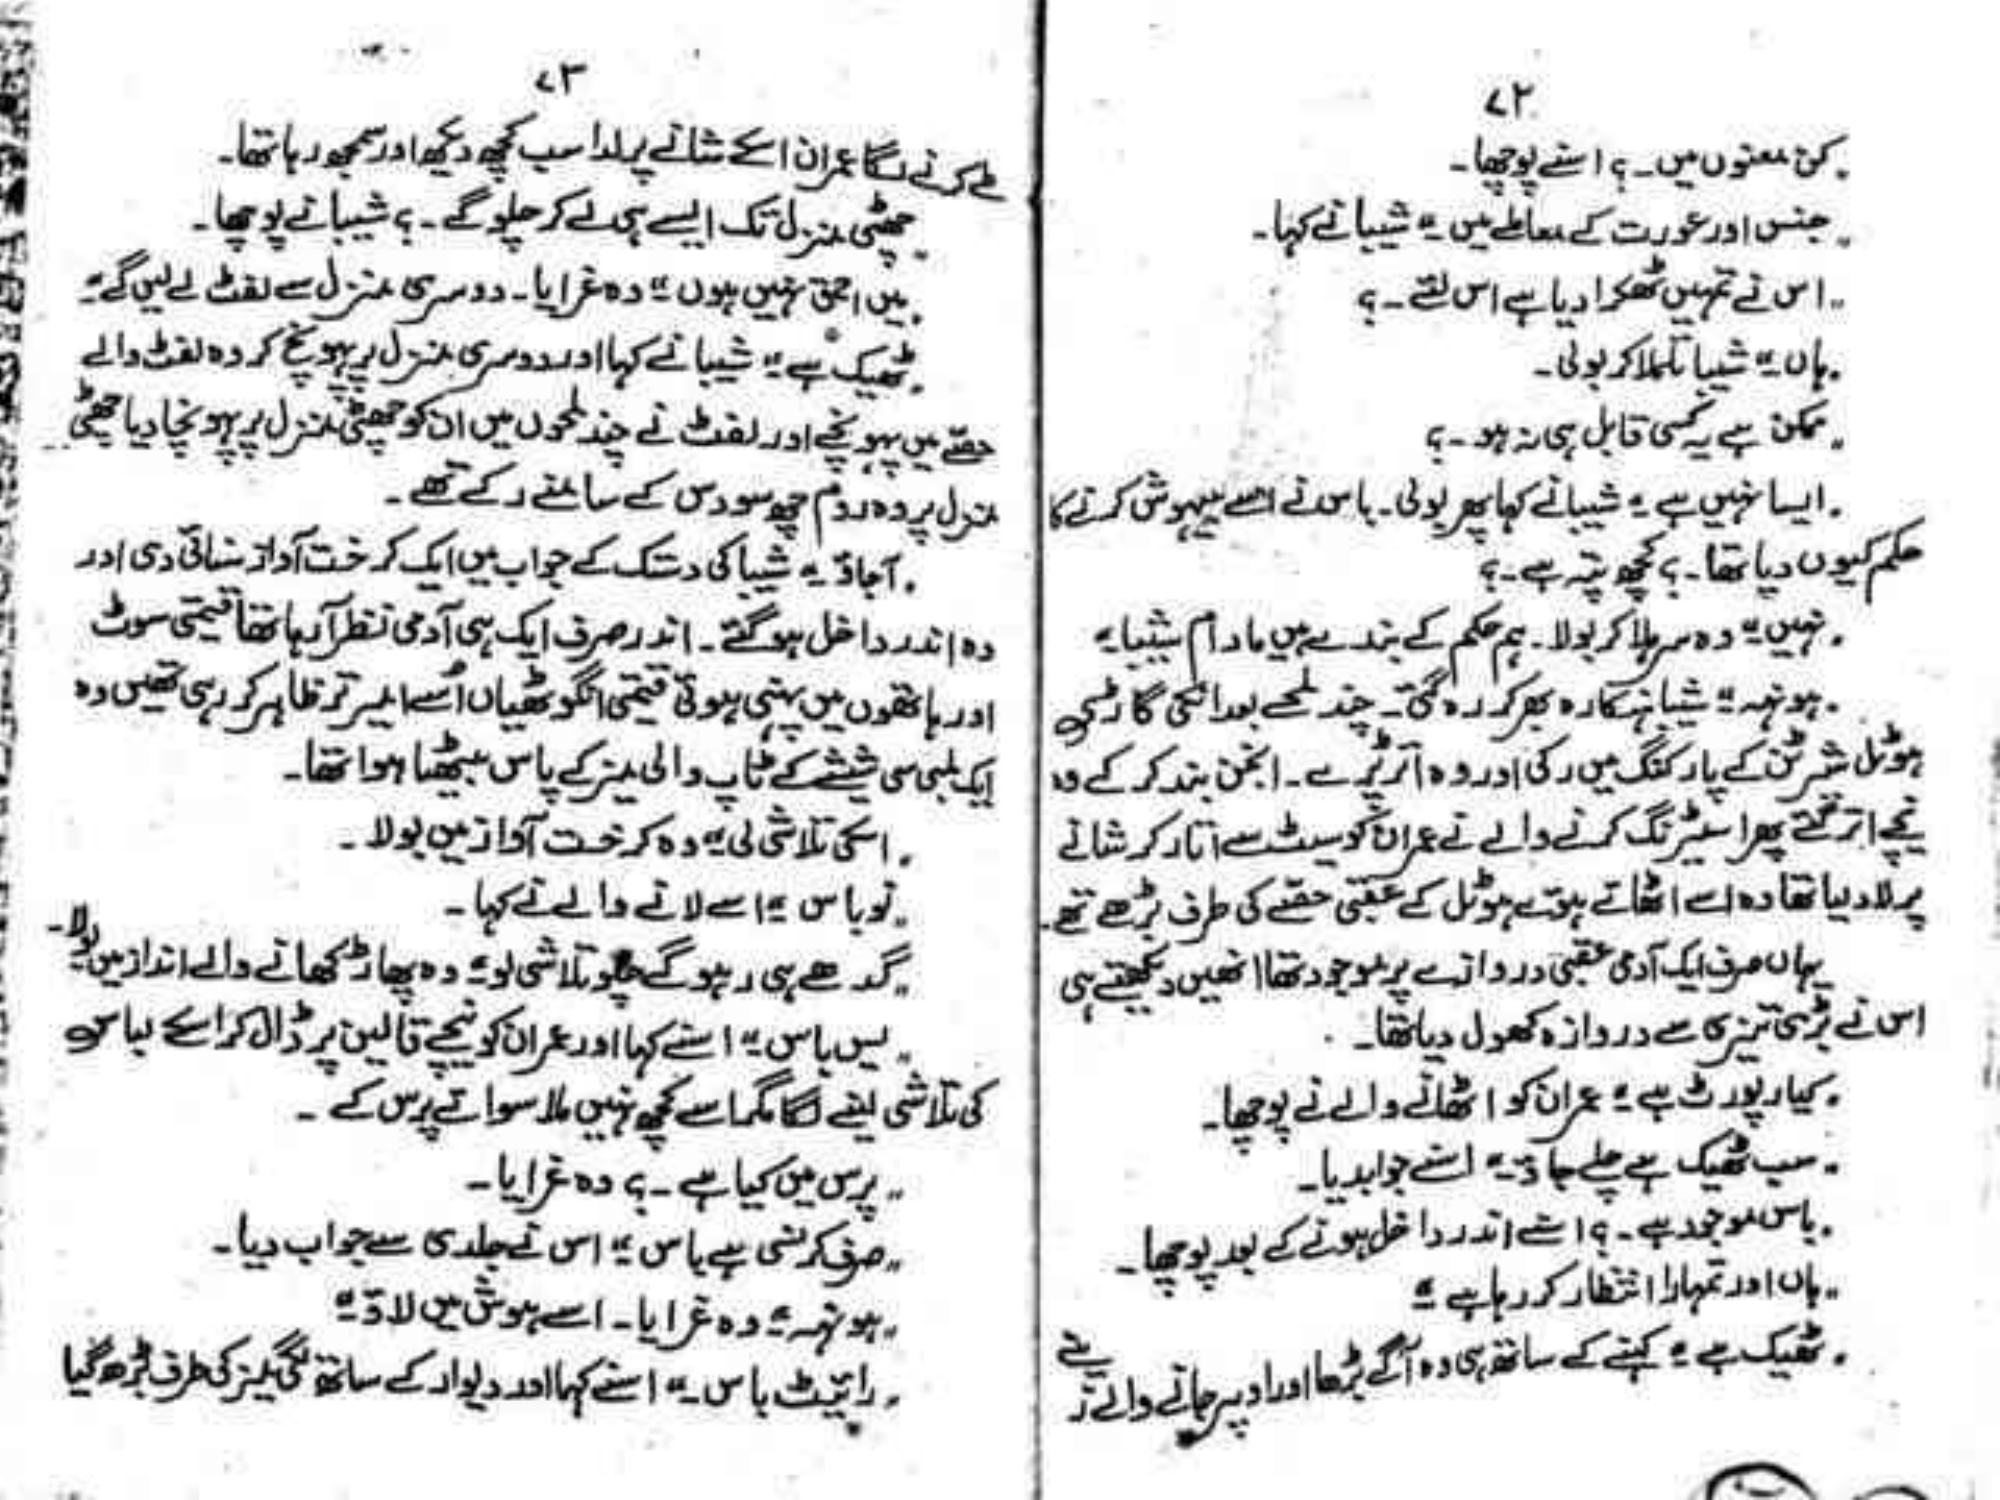 ۷۲
" کن معنوں میں ۔ ؟ اسنے پوچھا ۔
" جنس اور عورت کے معاملے میں " شیبا نے کہا ۔
" اس نے تمہیں ٹھکرا دیا ہے اس لئے ۔ ؟
" ہاں " شیبا تلملا کر بولی ۔
" ممکن ہے یہ کسی قابل ہی نہ ہو ۔ ؟
" ایسا نہیں ہے " شیبا نے کہا پھر بولی ۔ باس نے اسے بیہوش کرنے کا
حکم کیوں دیا تھا ۔ ؟ کچھ پتہ ہے ۔ ؟
" نہیں " وہ سر ہلا کر بولا ۔ ہم حکم کے بندے ہیں مادام شیبا "
" ہونہہ " شیبا ہنکارہ بھر کر رہ گئی ۔ چند لمحے بعد انکی گاڑی
ہوٹل شرٹن کے پارکنگ میں رکی اور وہ اتر پڑے ۔ انجن بند کر کے وہ
نیچے اتر گئے پھر اسٹیرنگ کرنے والے نے عمران کو سیٹ سے اتار کر شانے
پر لاد لیا تھا وہ اسے اٹھائے ہوئے ہوٹل کے عقبی حصّے کی طرف بڑھے تھے ۔
یہاں صرف ایک آدمی عقبی دروازے پر موجود تھا انھیں دیکھتے ہی
اس نے بڑی تیزی سے دروازہ کھول دیا تھا ۔
" کیا رپورٹ ہے " عمران کو اٹھانے والے نے پوچھا ۔
" سب ٹھیک ہے چلے جاؤ ۔ " اسنے جوابدیا ۔
" باس موجود ہے ۔ ؟ اسنے اندر داخل ہونے کے بعد پوچھا ۔
" ہاں اور تمہارا انتظار کر رہا ہے "
" ٹھیک ہے " کہنے کے ساتھ ہی وہ آگے بڑھا اور اوپر جانے والے زینے
۷۳
طے کرنے لگا عمران اسکے شانے پر لدا سب کچھ دیکھ اور سمجھ رہا تھا ۔
" چھٹی منزل تک ایسے ہی لے کر چلو گے ۔ ؟ شیبا نے پوچھا ۔
" میں احمق نہیں ہوں " وہ غرایا ۔ دوسری منزل سے لفٹ لے لیں گے "
" ٹھیک ہے " شیبا نے کہا اور دوسری منزل پر پہونچ کر وہ لفٹ والے
حصّے میں پہونچے اور لفٹ نے چند لمحوں میں ان کو چھٹی منزل پر پہونچا دیا چھٹی
منزل پر وہ روم چھ سو دس کے سامنے رکے تھے ۔
" آجاؤ " شیبا کی دستک کے جواب میں ایک کرخت آواز سنائی دی اور
وہ اندر داخل ہو گئے ۔ اندر صرف ایک ہی آدمی نظر آ رہا تھا قیمتی سوٹ
اور ہاتھوں میں پہنی ہوئی قیمتی انگوٹھیاں اُسے امیر تر ظاہر کر رہی تھیں وہ
ایک لمبی سی شیشے کے ٹاپ والی میز کے پاس بیٹھا ہوا تھا ۔
" اسکی تلاشی لی " وہ کرخت آواز میں بولا ۔
" نو باس " اسے لانے والے نے کہا ۔
" گدھے ہی رہو گے چلو تلاشی لو " وہ پھاڑ کھانے والے انداز میں بولا ۔
" یس باس " اسنے کہا اور عمران کو نیچے قالین پر ڈال کر اسکے لباس
کی تلاشی لینے لگا مگر اسے کچھ نہیں ملا سوائے پرس کے ۔
" پرس میں کیا ہے ۔ ؟ وہ غرایا ۔
" صرف کرنسی ہے باس " اس نے جلدی سے جواب دیا ۔
" ہونہہ " وہ غرایا ۔ اسے ہوش میں لاؤ "
" رائیٹ باس ۔ " اسنے کہا اور دیوار کے ساتھ لگی میز کی طرف بڑھ گیا